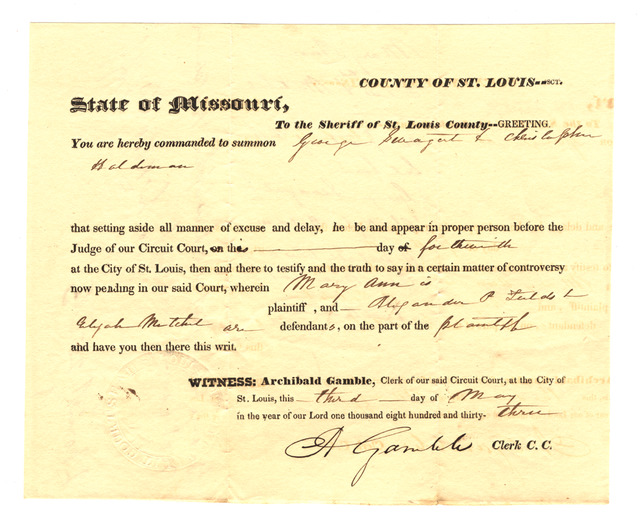 COUNTY OF ST. LOUIS--SCT.
State of Missouri,
To the Sheriff of St. Louis County--GREETING.
You are hereby commanded to summon George & Christopher
Haldiman
that setting aside all manner of excuse and delay, he be and appear in proper person before the
Judge of our Circuit Court, on this day of forthwith
at the City of St. Louis, then and there to testify and the truth to say in a certain matter of controversy
now pending in our said Court, wherein Mary Ann is
plaintiff, and Alexander P Fields &
Elijah Mitchel are defendants, on the part of the plaintiff
and have you then there this writ.
WITNESS: Archibald Gamble, Clerk of our said Circuit Court, at the City of
St. Louis, this third day of May
in the year of our Lord one thousand eight hundred and thirty- three
A Gamble Clerk C. C.